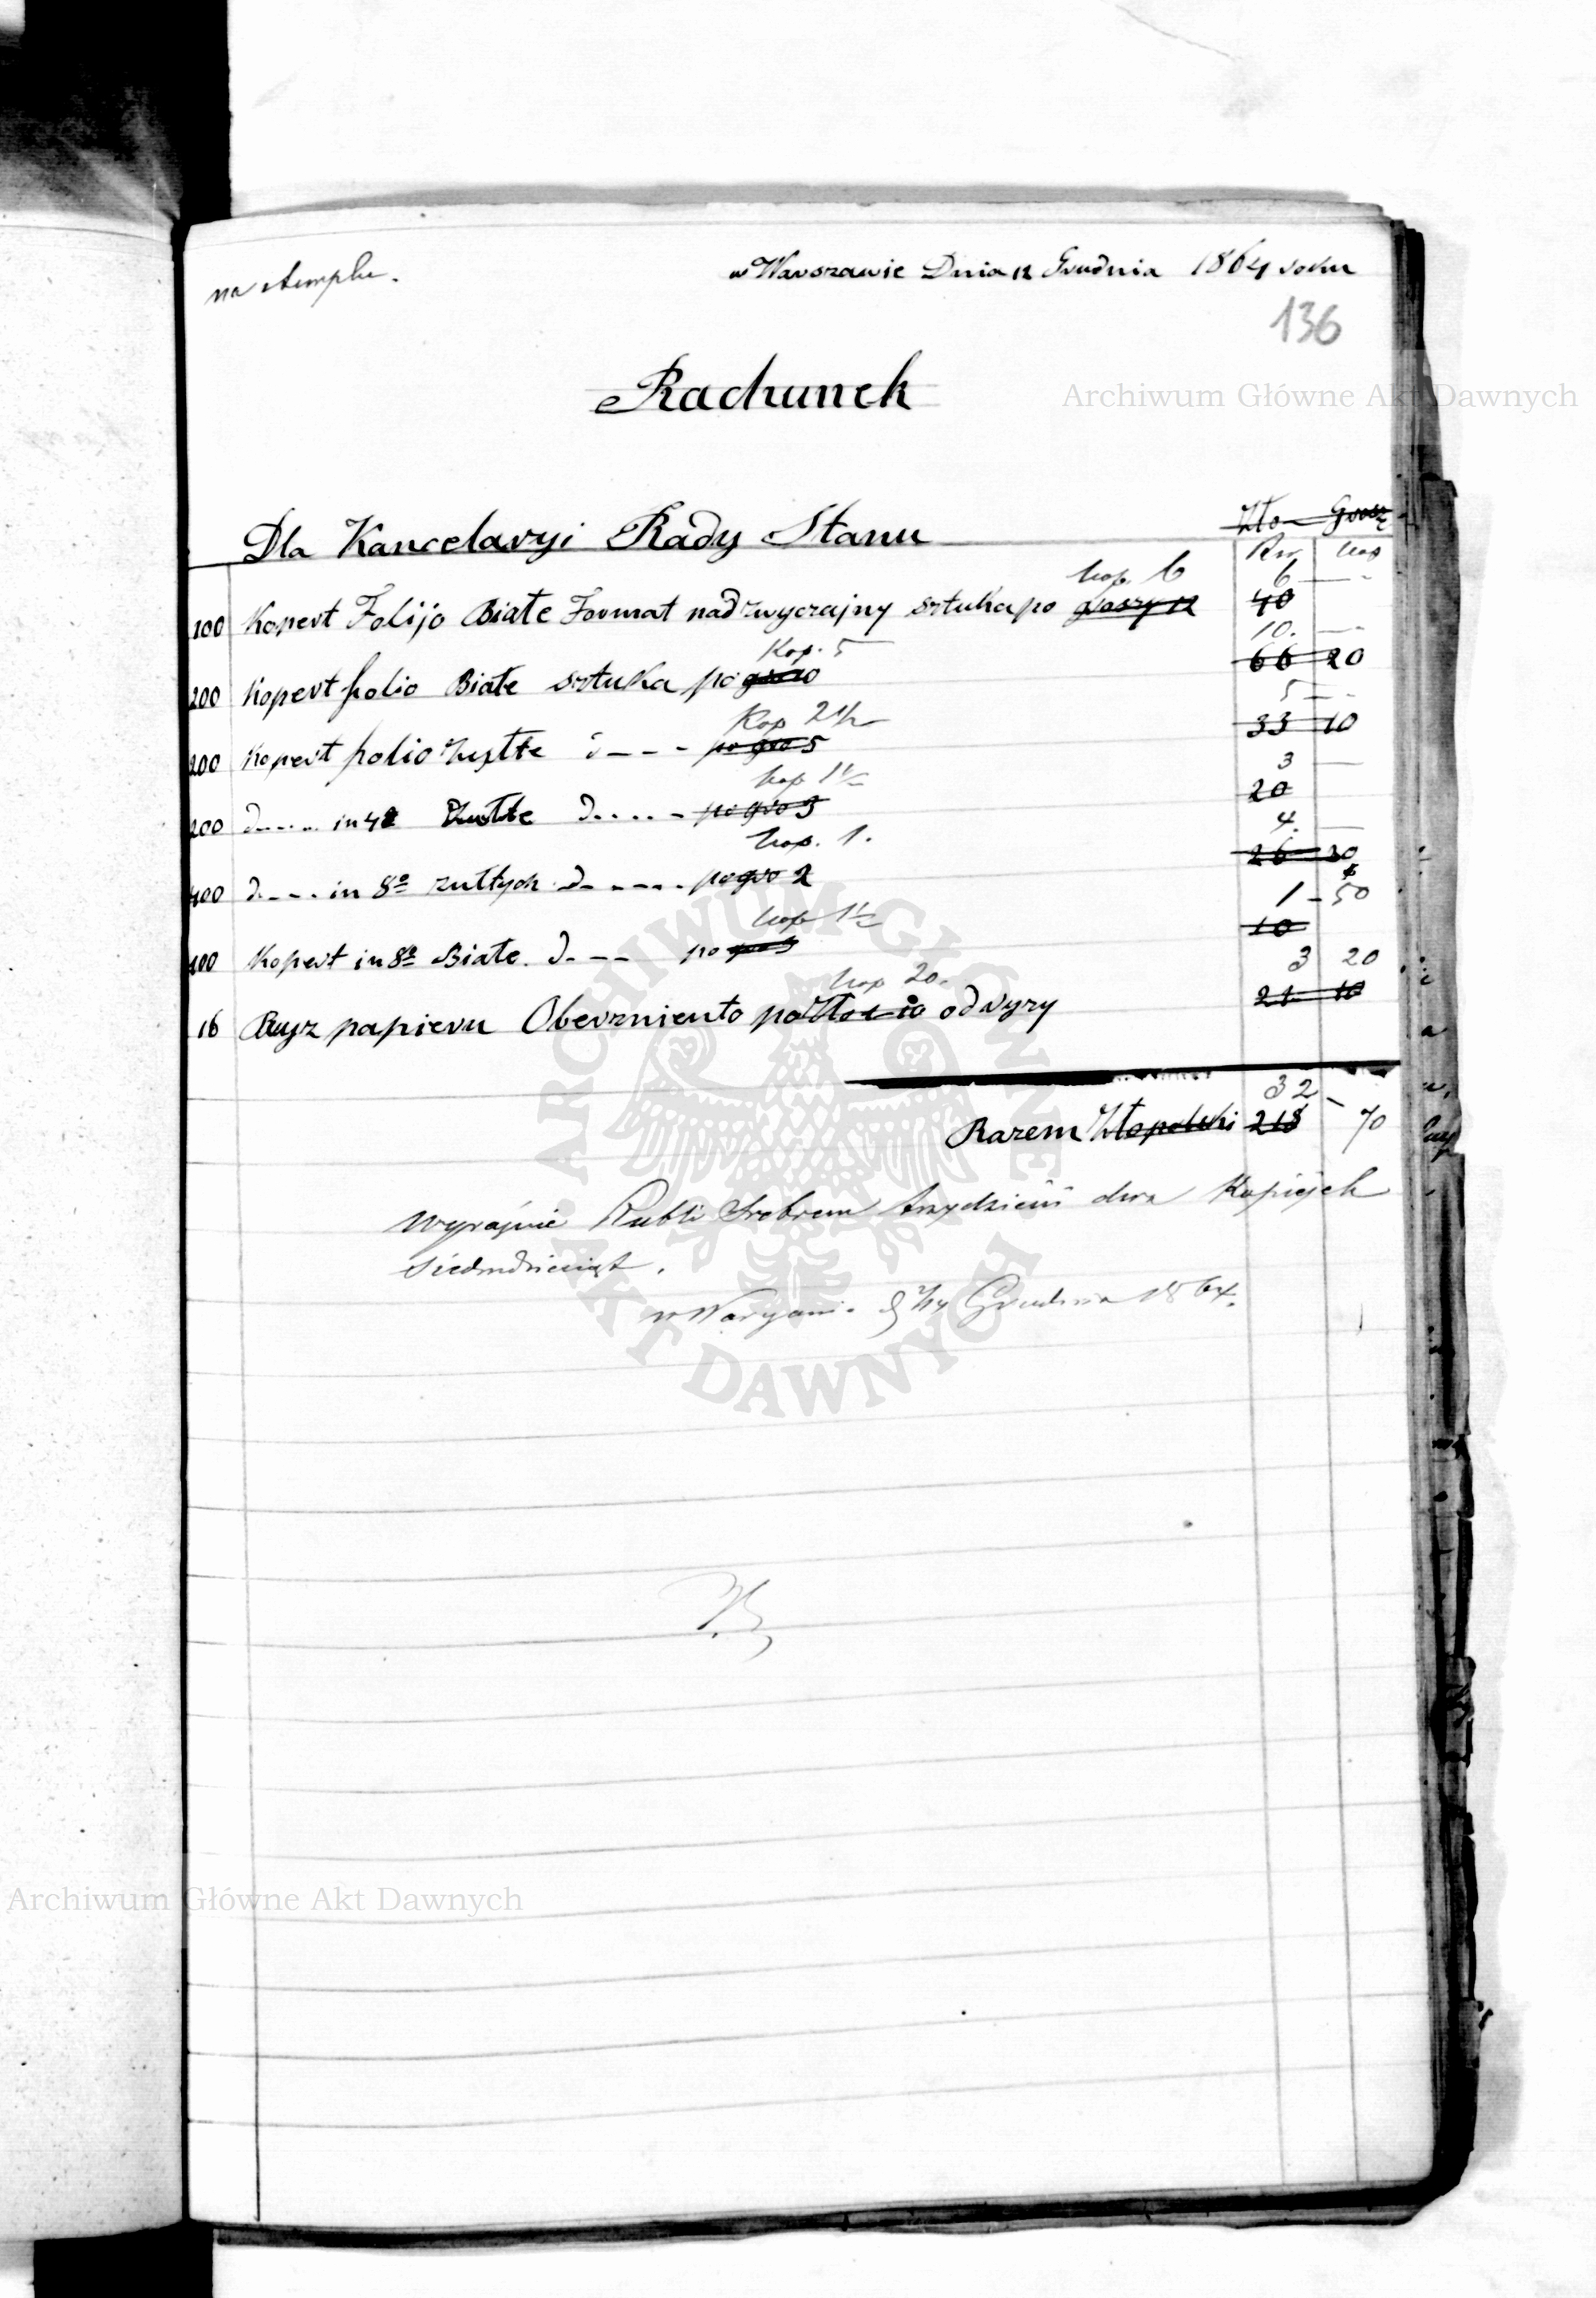 na stemplu.
w Warszawie Dnia 12 Grudnia 1864 roku
136
Rachunek
Archiwum Główne Akt Dawnych
Dla Kancelaryi Rady Stanu
Zło Grosz
Rsr kop
kop. 6 6 —
100 Kopert Folijo Białe Format nadzwyczajny sztuka po groszy 12 40
Kop. 5 10. —
200 Kopert folio Białe sztuka po gro 10 66 20
Kop 2 1/2 5 —
200 Kopert folio Zułte d - - - po gro 5 33 10
kop 1 1/2 3 —
200 d..... in 4o Zułte d..... po gro 3 20
kop. 1. 4. —
400 d.... in 8o zułtych d..... po gro 2 26 20
kop 1 1/2 1 - 50
100 Kopert in 8o Białe. d. - - po gro 3 10
kop 20. 3 20
16 Ryz papieru Oberzniento po Zło 1 10 od ryzy 21 10
32 -
Razem Zło polski 218 70
Wyraźnie Rubli Srebrem trzydzieści dwa Kopiejek
siedmdziesiąt.
w Warszawie d 2/14 Grudnia 1864.
ARCHIWUM GŁÓWNE AKT DAWNYCH
Archiwum Główne Akt Dawnych